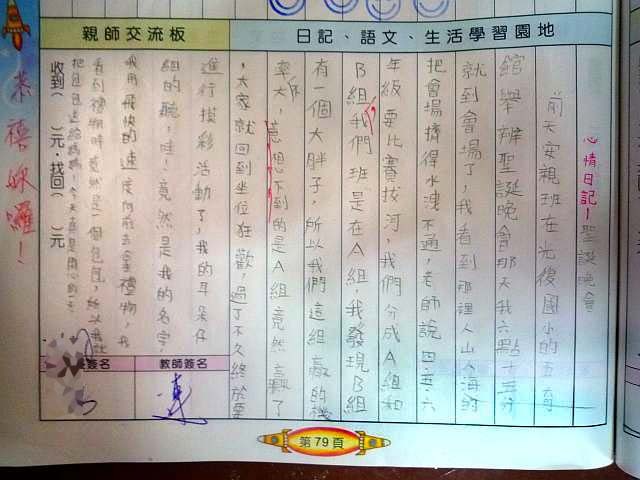 恭禧妳囉！
日記、語文、生活學習園地
親師交流板
心情日記－聖誕晚會
前天安親班在光復國小的五育
館舉辦聖誕晚會那天我六點十五分
就到會場了，我看到那裡人山人海的
把會場擠得水洩不通，老師說四、五、六
年級要比賽拔河，我們分成A組和
B組，我們班是在A組，我發現B組
有一個大胖子，所以我們這組贏的機
率大，意想不到的是A組竟然贏了
，大家就回到坐位狂歡，過了不久終於要
進行摸彩活動了，我的耳朵仔
細的聽，哇！竟然是我的名字，
我用飛快的速度向前去拿禮物，我
看到禮物時竟然是一個包包，所以我就
把包包送給媽媽，今天真是開心的一天。
收到（ ）元，找回（ ）元
簽名
教師簽名
第79頁